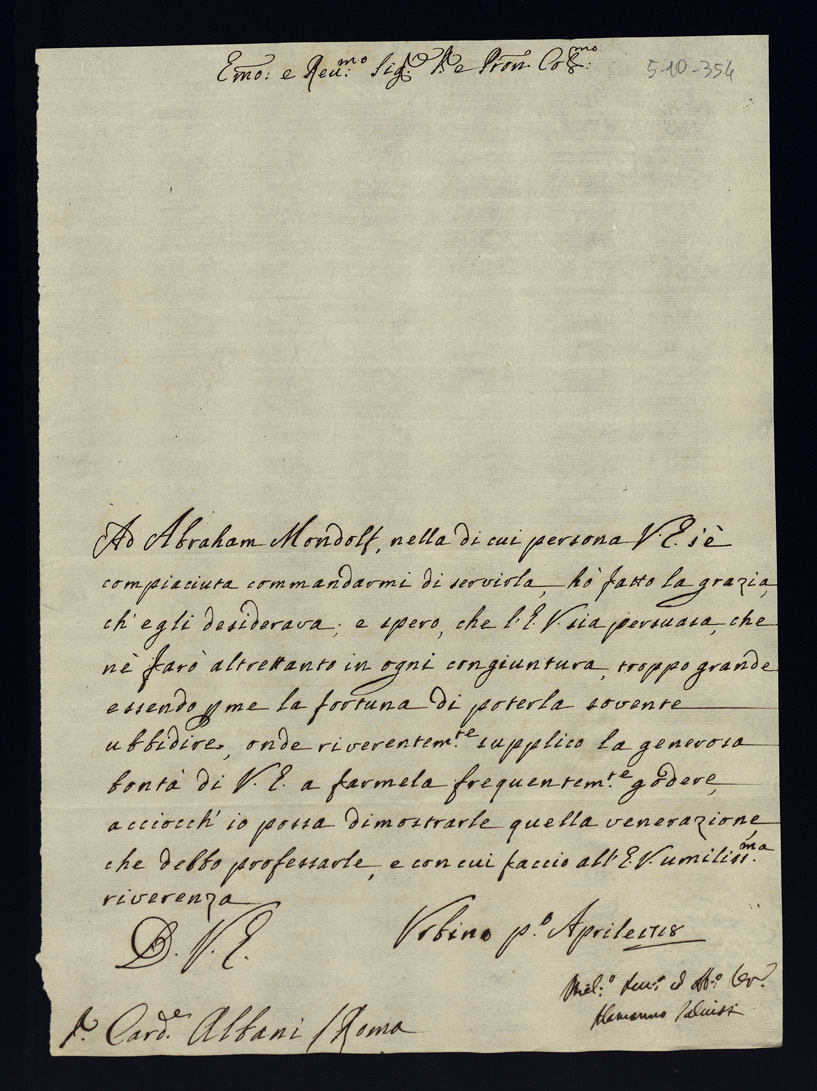 Emo: e Reu:mo Sig:r P. e Pron: Col:mo
5-10-354
Ad Abraham Mondolf, nella di cui persona V. E. s'è
compiaciuta commandarmi di servirla, hò fatto la grazia,
ch' egli desiderava; e spero, che l' E. V. sia persuasa, che
nè farò altrettanto in ogni congiuntura, troppo grande
essendo p me la fortuna di poterla sovente
ubbidire, onde riverentem:te supplico la generosa
bontà di V. E. a farmela frequentem:te godere,
acciocch' io possa dimostrarle quella venerazione,
che debbo professarle, e con cui faccio all' E. V. umiliss:ma
riverenza
D. V. E.
Urbino p:o Aprile 1718
Alamanno Salviati
Card:e Albani / Roma